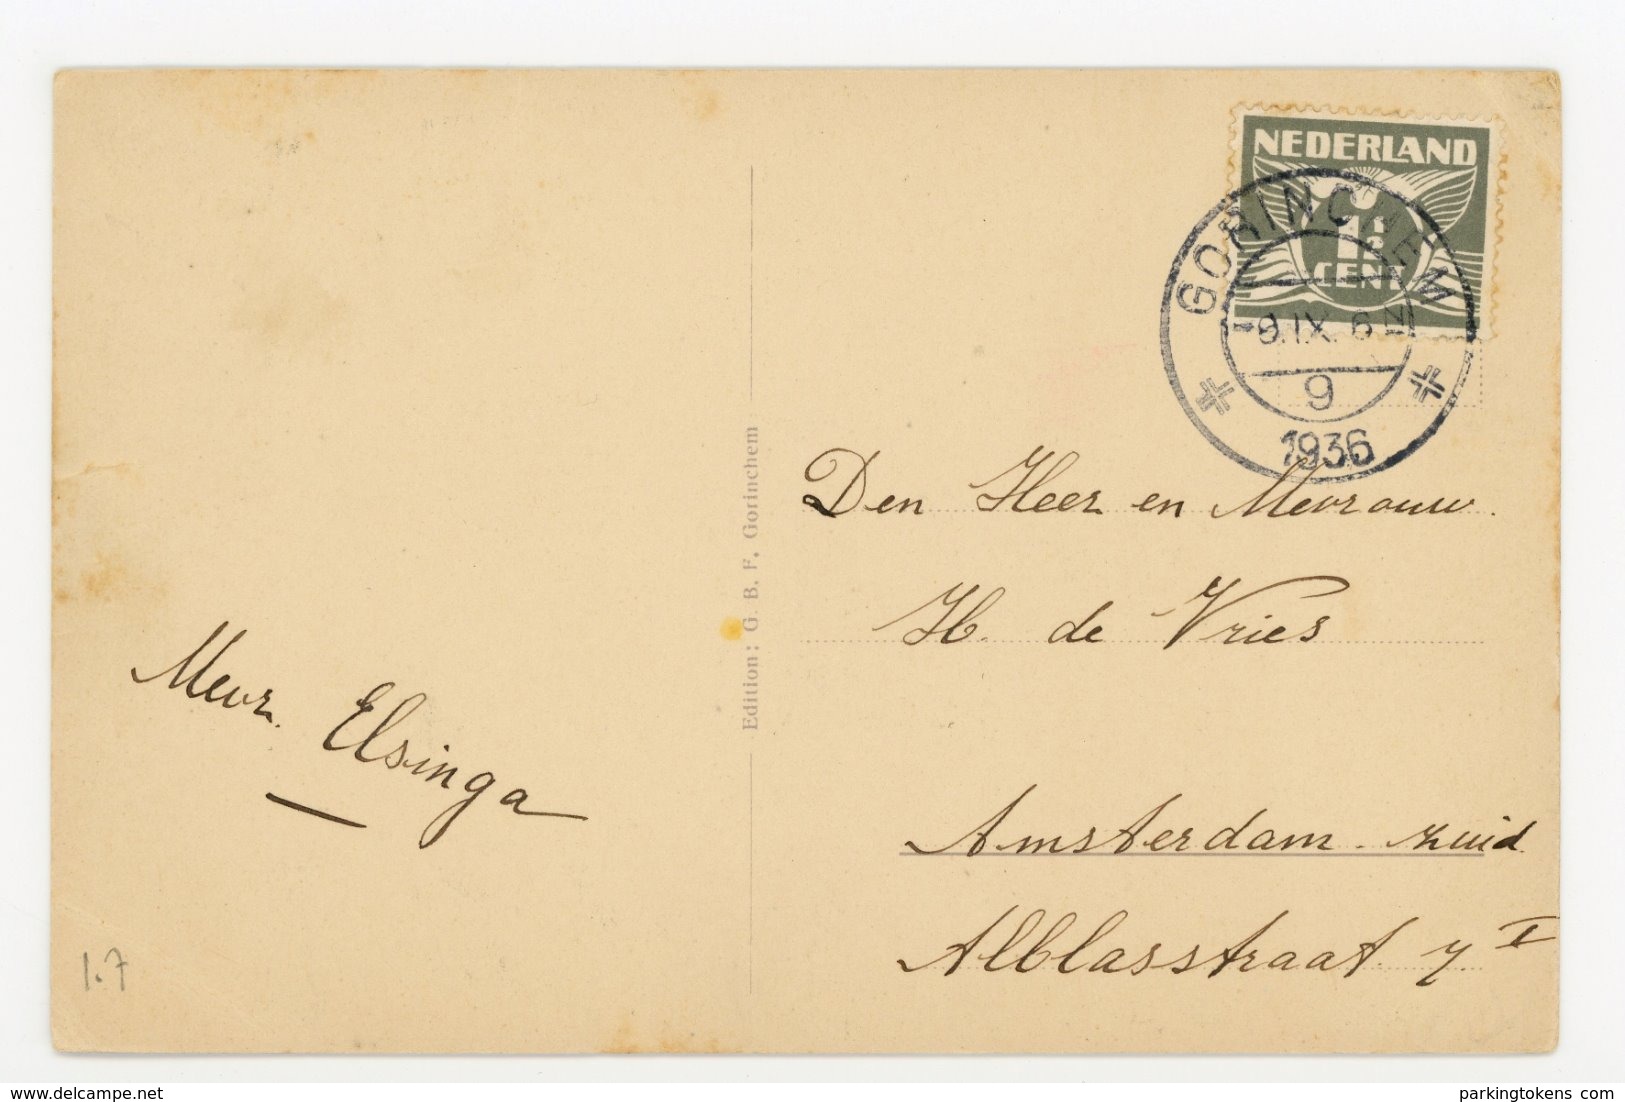 NEDERLAND
1½
CENT
GORINCHEM
-9.IX. 6 N
9
1936
Den Heer en Mevrouw.
H. de Vries
Amsterdam. Zuid.
Alblasstraat 7 I
Mevr. Elsinga
Edition: G. B. F. Gorinchem
1.7
delcampe.net
parkingtokens_com